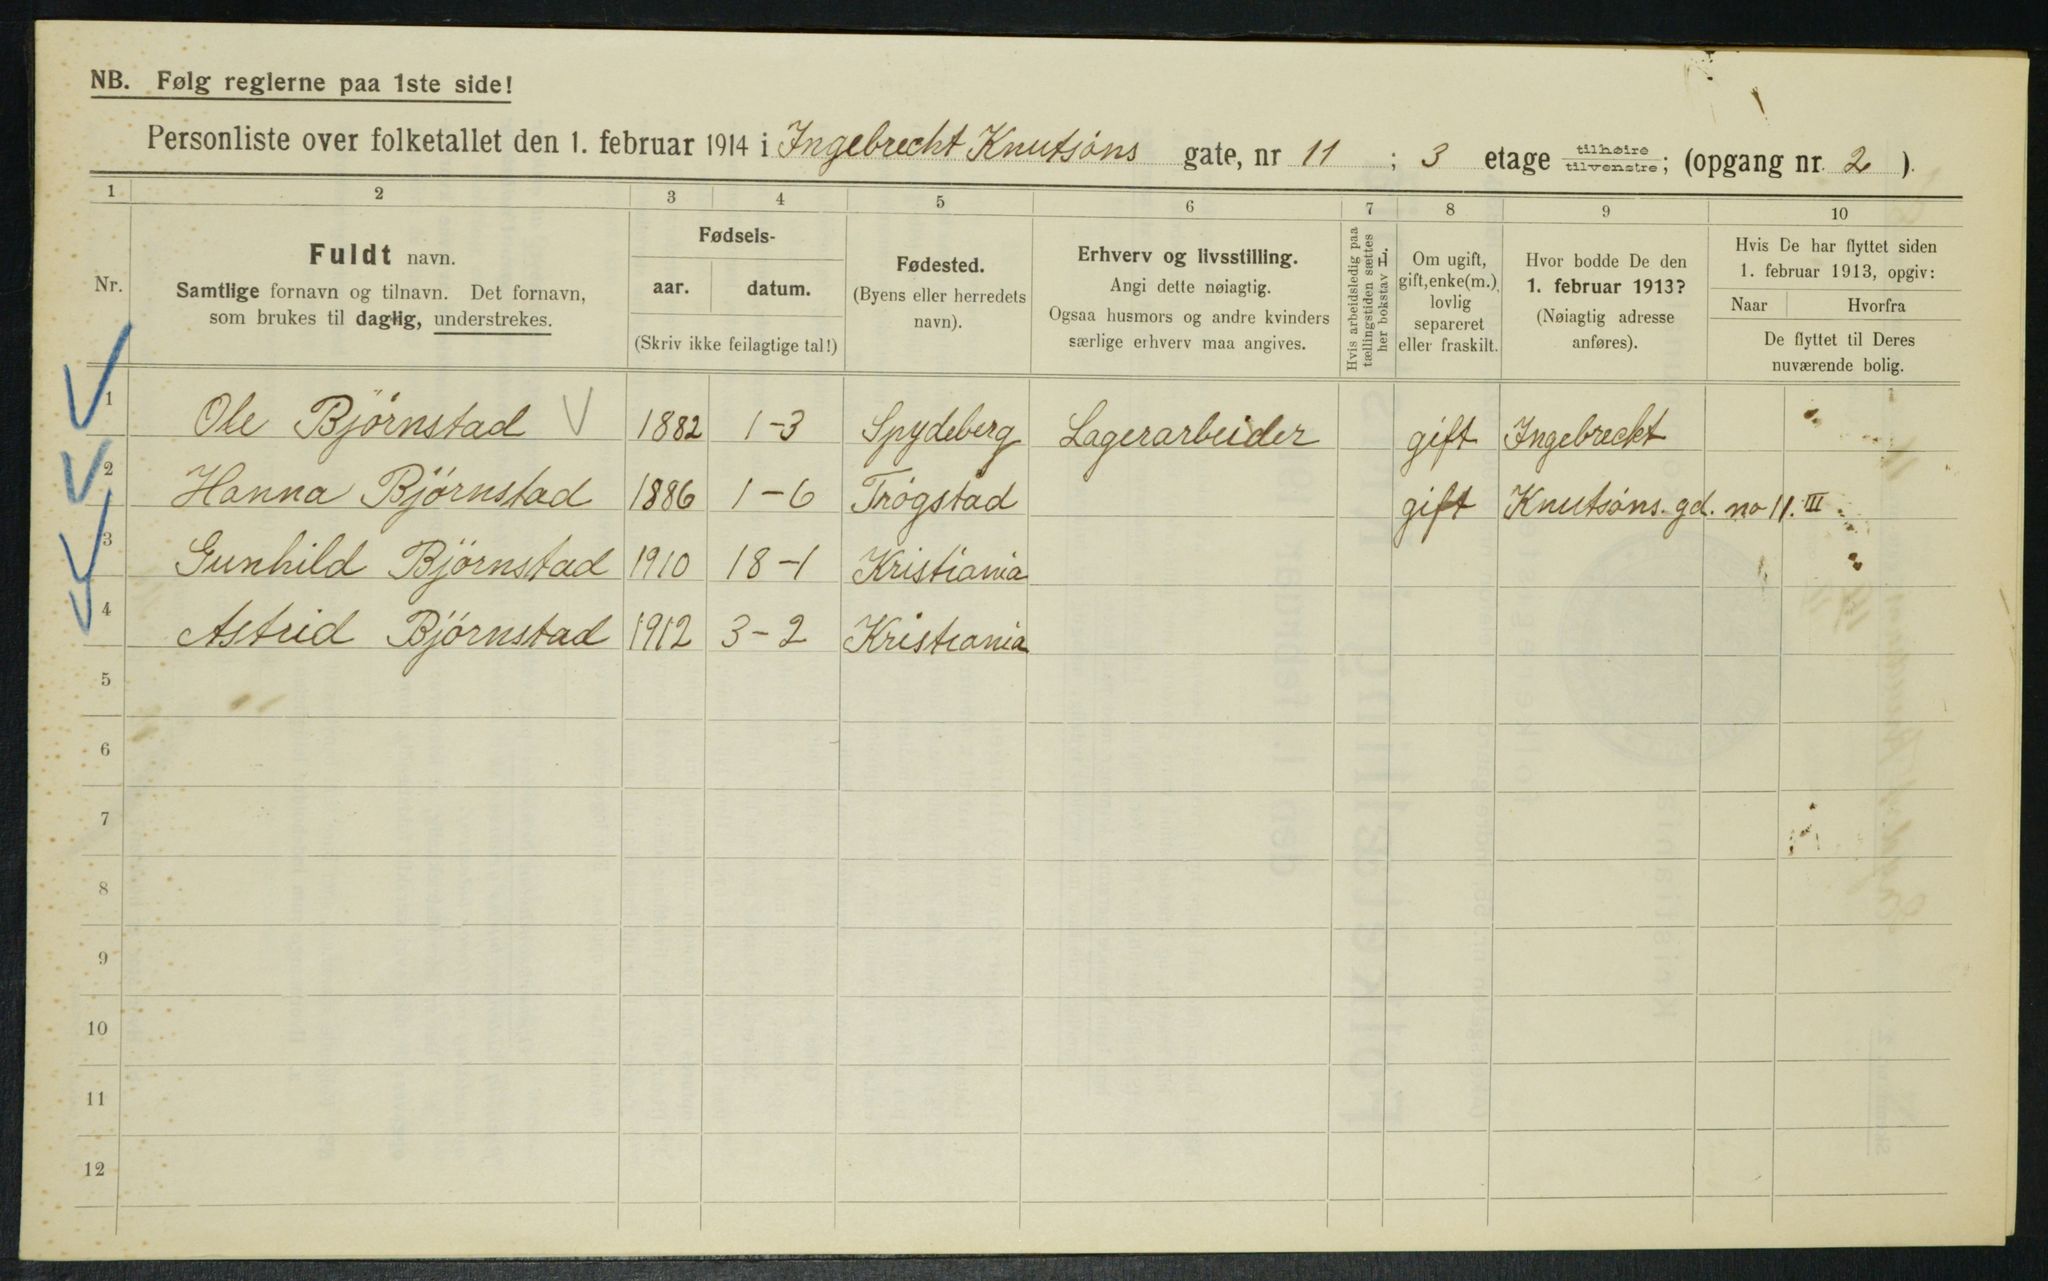 NB. Følg reglerne paa 1ste side!
Personliste over folketallet den 1. februar 1914 i Ingebrecht Knutsóns gate, nr 11 ; 3 etage tilhøire/tilvenstre; (opgang nr. 2 ).
1 2 3 4 5 6 7 8 9 10
Nr.
Fuldt navn.
Samtlige fornavn og tilnavn. Det fornavn,
som brukes til daglig, understrekes.
Fødsels-
aar. datum.
(Skriv ikke feilagtige tal!)
Fødested.
(Byens eller herredets
navn).
Erhverv og livsstilling.
Angi dette nøiagtig.
Ogsaa husmors og andre kvinders
særlige erhverv maa angives.
Hvis arbeidsledig paa
tællingstiden sættes
her bokstav L.
Om ugift,
gift, enke(m.),
lovlig
separeret
eller fraskilt.
Hvor bodde De den
1. februar 1913?
(Nøiagtig adresse
anføres).
Hvis De har flyttet siden
1. februar 1913, opgiv:
Naar Hvorfra
De flyttet til Deres
nuværende bolig.
1 Ole Björnstad 1882 1-3 Spydeberg Lagerarbeider gift Ingebreckt
2 Hanna Björnstad 1886 1-6 Trógstad gift Knutsóns. gd. no 11. III
3 Gunhild Björnstad 1910 18-1 Kristiania
4 Astrid Bjórnstad 1912 3-2 Kristiania
5
6
7
8
9
10
11
12